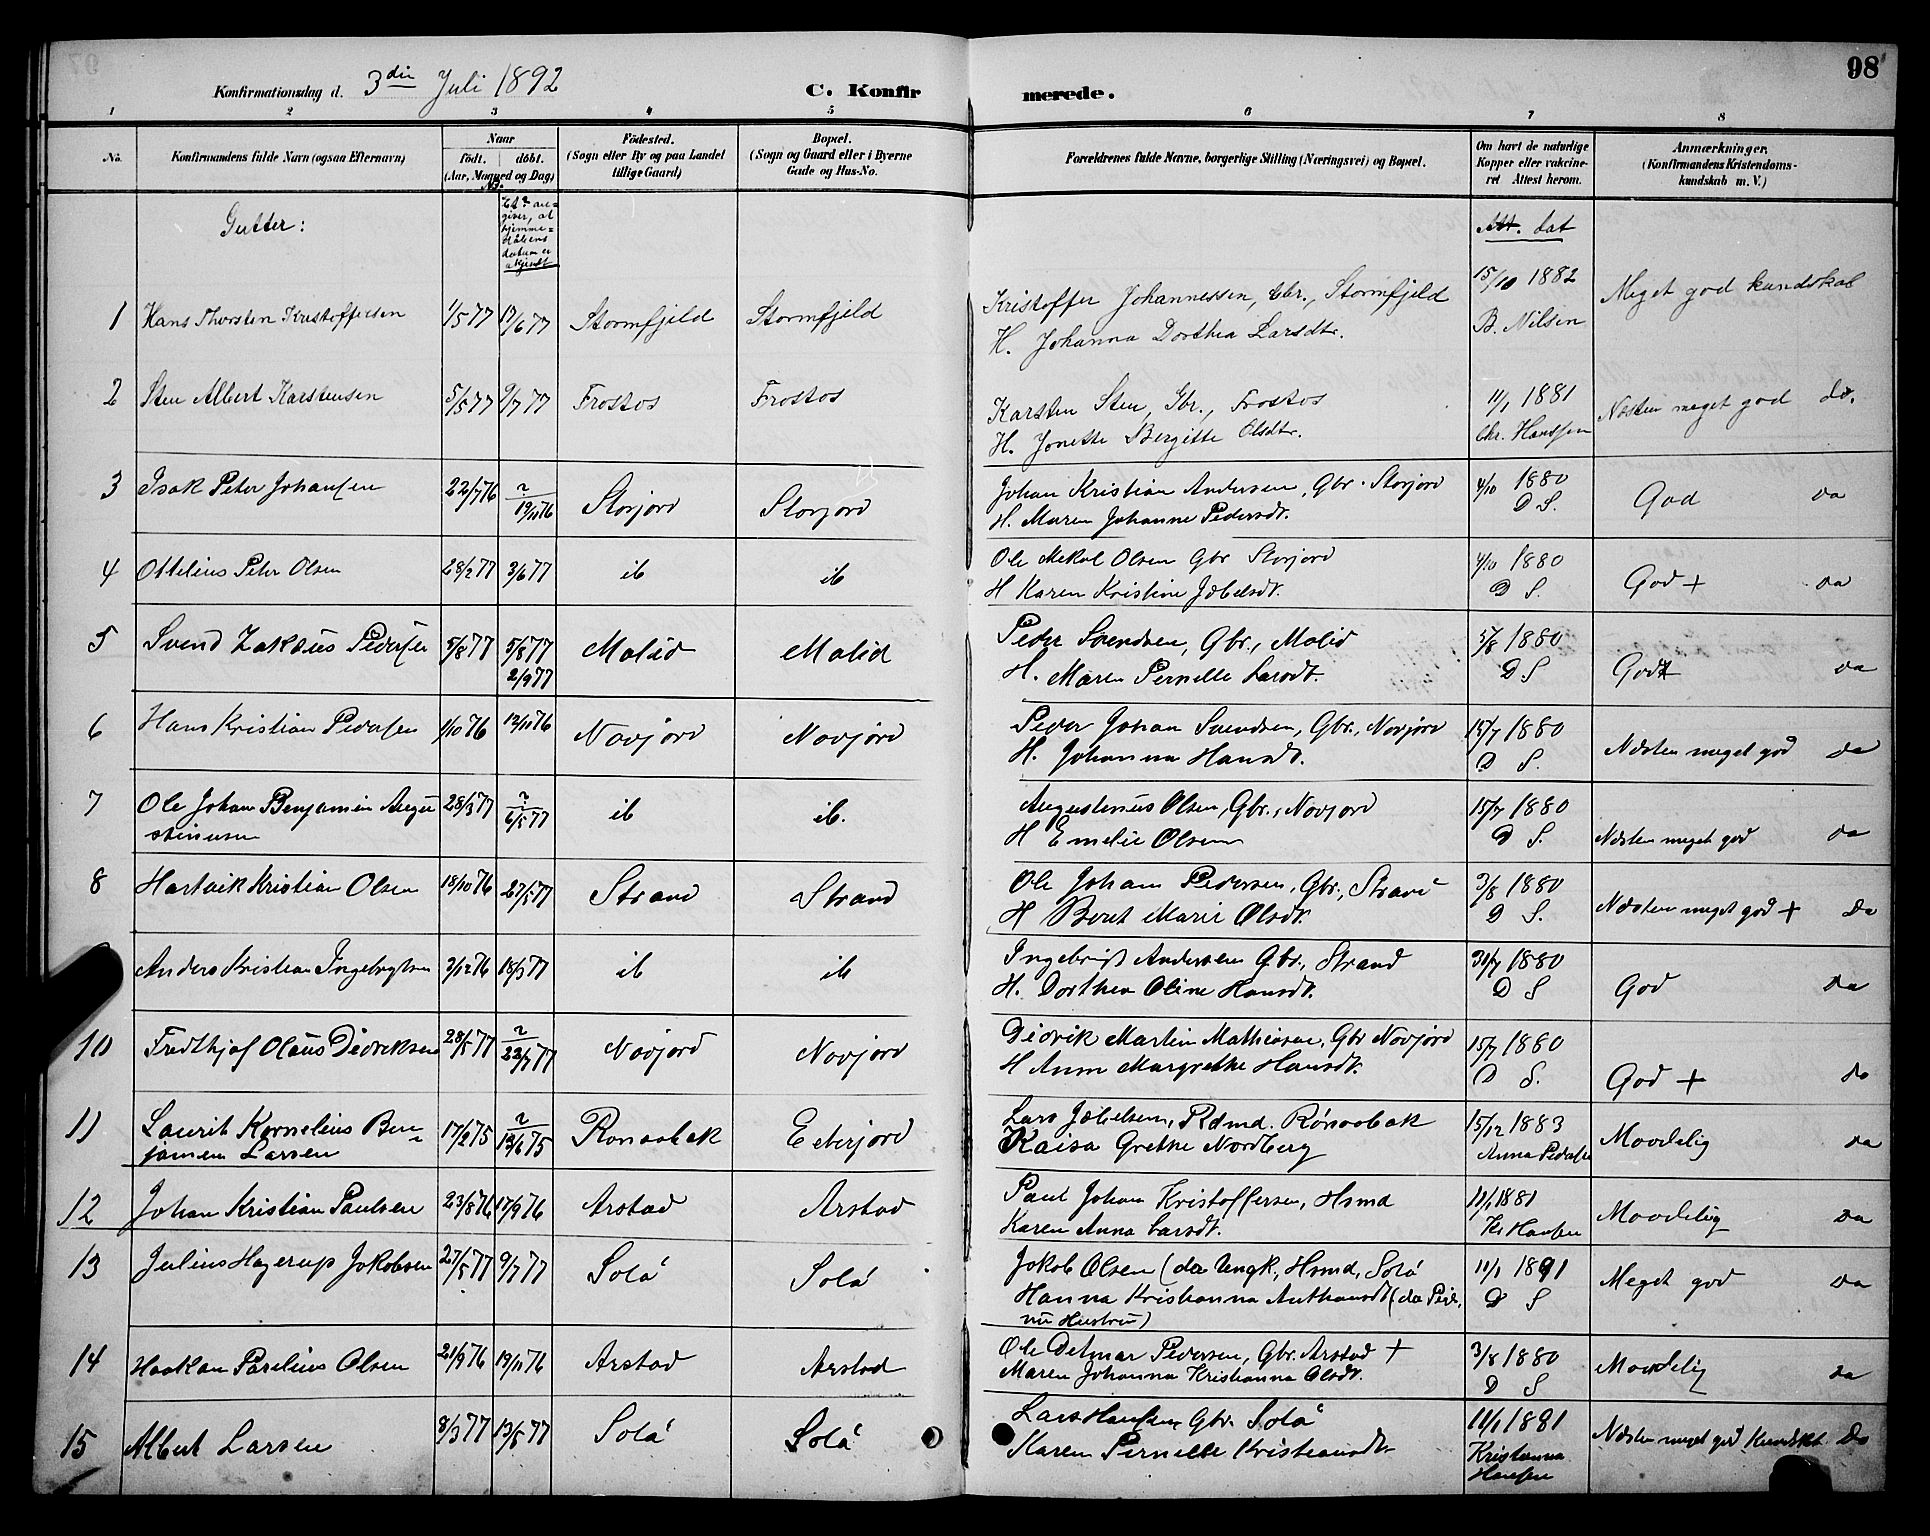 98
Konfirmationsdag d. 3die Juli 1892
C. Konfirmerede.
1 2 3 4 5 6 7 8
No.
Konfirmandens fulde Navn (ogsaa Efternavn)
Naar
födt. döbt.
(Aar, Maaned og Dag)
Födested.
(Sogn eller By og paa Landet
tillige Gaard)
Bopæl.
(Sogn og Gaard eller i Byerne
Gade og Hus-No.
Forældrenes fulde Navne, borgerlige Stilling (Næringsvei) og Bopæl.
Om havt de naturlige
Kopper eller vakcine-
ret Attest herom.
Anmærkninger.
(Konfirmandens Kristendoms-
kundskab m. V.)
NB.
Et ? an=
giver, at
hjemme=
daabens
datum er
ukjendt
Gutter:
Att. dat
1 Hans Thorsten Kristoffersen 1/5 77 17/6 77 Stormfjeld Stormfjeld Kristoffer Johannessen, Gbr., Stormfjeld 15/10 1882 Meget god kundskab
H. Johanna Dorthea Larsdtr. B. Nilsen
2 Sten Albert Karstensen 5/5 77 9/7 77 Frostos Frostos Karsten Sten, Gbr., Frostos 11/1 1881 Næsten meget god do.
H. Jonette Bergitte Olsdtr. Chr. Hanssen
3 Isak Peter Johansen 22/7 76 ?/19/11 76 Storjord Storjord Johan Kristian Andersen, Gbr. Storjord 4/10 1880 God do
H. Maren Johanne Pedersdt. D S.
4 Ottelius Peter Olsen 28/2 77 3/6 77 ib ib Ole Mekal Olsen Gbr Storjord 4/10 1880 God + do
H Karen Kristine Jæbelsdt. D S.
5 Svend Zakæus Pedersen 5/8 77 5/8 77 Molid Molid Peder Svendsen, Gbr., Molid 5/8 1880 Godt do
2/9 77 H. Maren Pernelle Larsdt. D S
6 Hans Kristian Pedersen 1/10 76 12/11 76 Novjord Novjord Peder Johan Svendsen, Gbr., Novjord 15/7 1880 Næsten meget god do
H. Johanna Hansdt. D S.
7 Ole Johan Benjamin Augu 28/3 77 ?/6/5 77 ib ib. Augustinus Olsen, Gbr., Novjord 15/7 1880 Næsten meget god do
stinusen H Emelie Olsen D S.
8 Hartvik Kristian Olsen 18/10 76 27/5 77 Strand Strand Ole Johan Pedersen, Gbr., Strand 3/8 1880 Næsten meget god + do
H Beret Marie Olsdt. D S.
Anders Kristian Ingebrigtsen 3/12 76 18/3 77 ib ib Ingebrigt Andersen Gbr., Strand 31/7 1880 God do
H. Dorthea Oline Hansdt. D S
10 Fredthjof Olaus Didriksen 28/5 77 ?/22/7 77 Novjord Novjord Didrik Martin Mathisen, Gbr Novjord 15/7 1880 God + do
H Anne Margrethe Hansdt. D S.
11 Laurit Kornelius Ben= 17/2 75 ?/13/6 75 Ronaabak Eeterjord Lars Jæbelsen, Rdmd. Rønaabak 15/12 1883 Maadelig do
jamin Larsen Kaisa Grethe Nordberg Anna Pedersen
12 Johan Kristian Paulsen 23/8 76 17/9 76 Arstad Arstad Paul Johan Kristoffersen, Hsmd 11/1 1881 Maadelig do
Karen Anna Larsdt. Hansen
13 Julius Hagerup Jakobsen 27/5 77 9/7 77 Solå Solå Jakob Olsen (da Ungk., Hsmd, Solå 11/1 1891 Meget god do
Hanna Kristianna Anthonsdt (da Pige, D S
nu Hustru)
14 Haakon Parelius Olsen 21/9 76 19/11 76 Arstad Arstad Ole Detmar Pedersen, Gbr. Arstad + 3/8 1880 Maadelig do
Maren Johanna Kristianna Olsdt. D S
15 Albert Larsen 8/3 77 13/5 77 Solå Solå Lars Hansen Gbr. Solå 11/1 1891 Næsten meget god Kundskt. do
Karen Pernelle Kristiansdt. Kristianna
Hansen